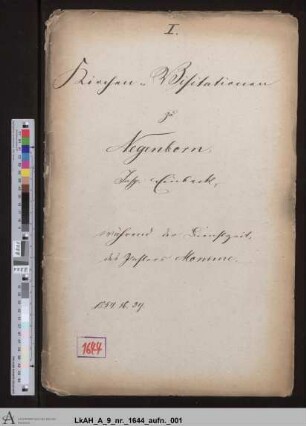 I.
Kirchen-Visitationen
Negenborn.
Insp. Einbeck,
während der Dienstzeit
des Pastors
1644
LkAH_A_9_nr._1644_aufn._001